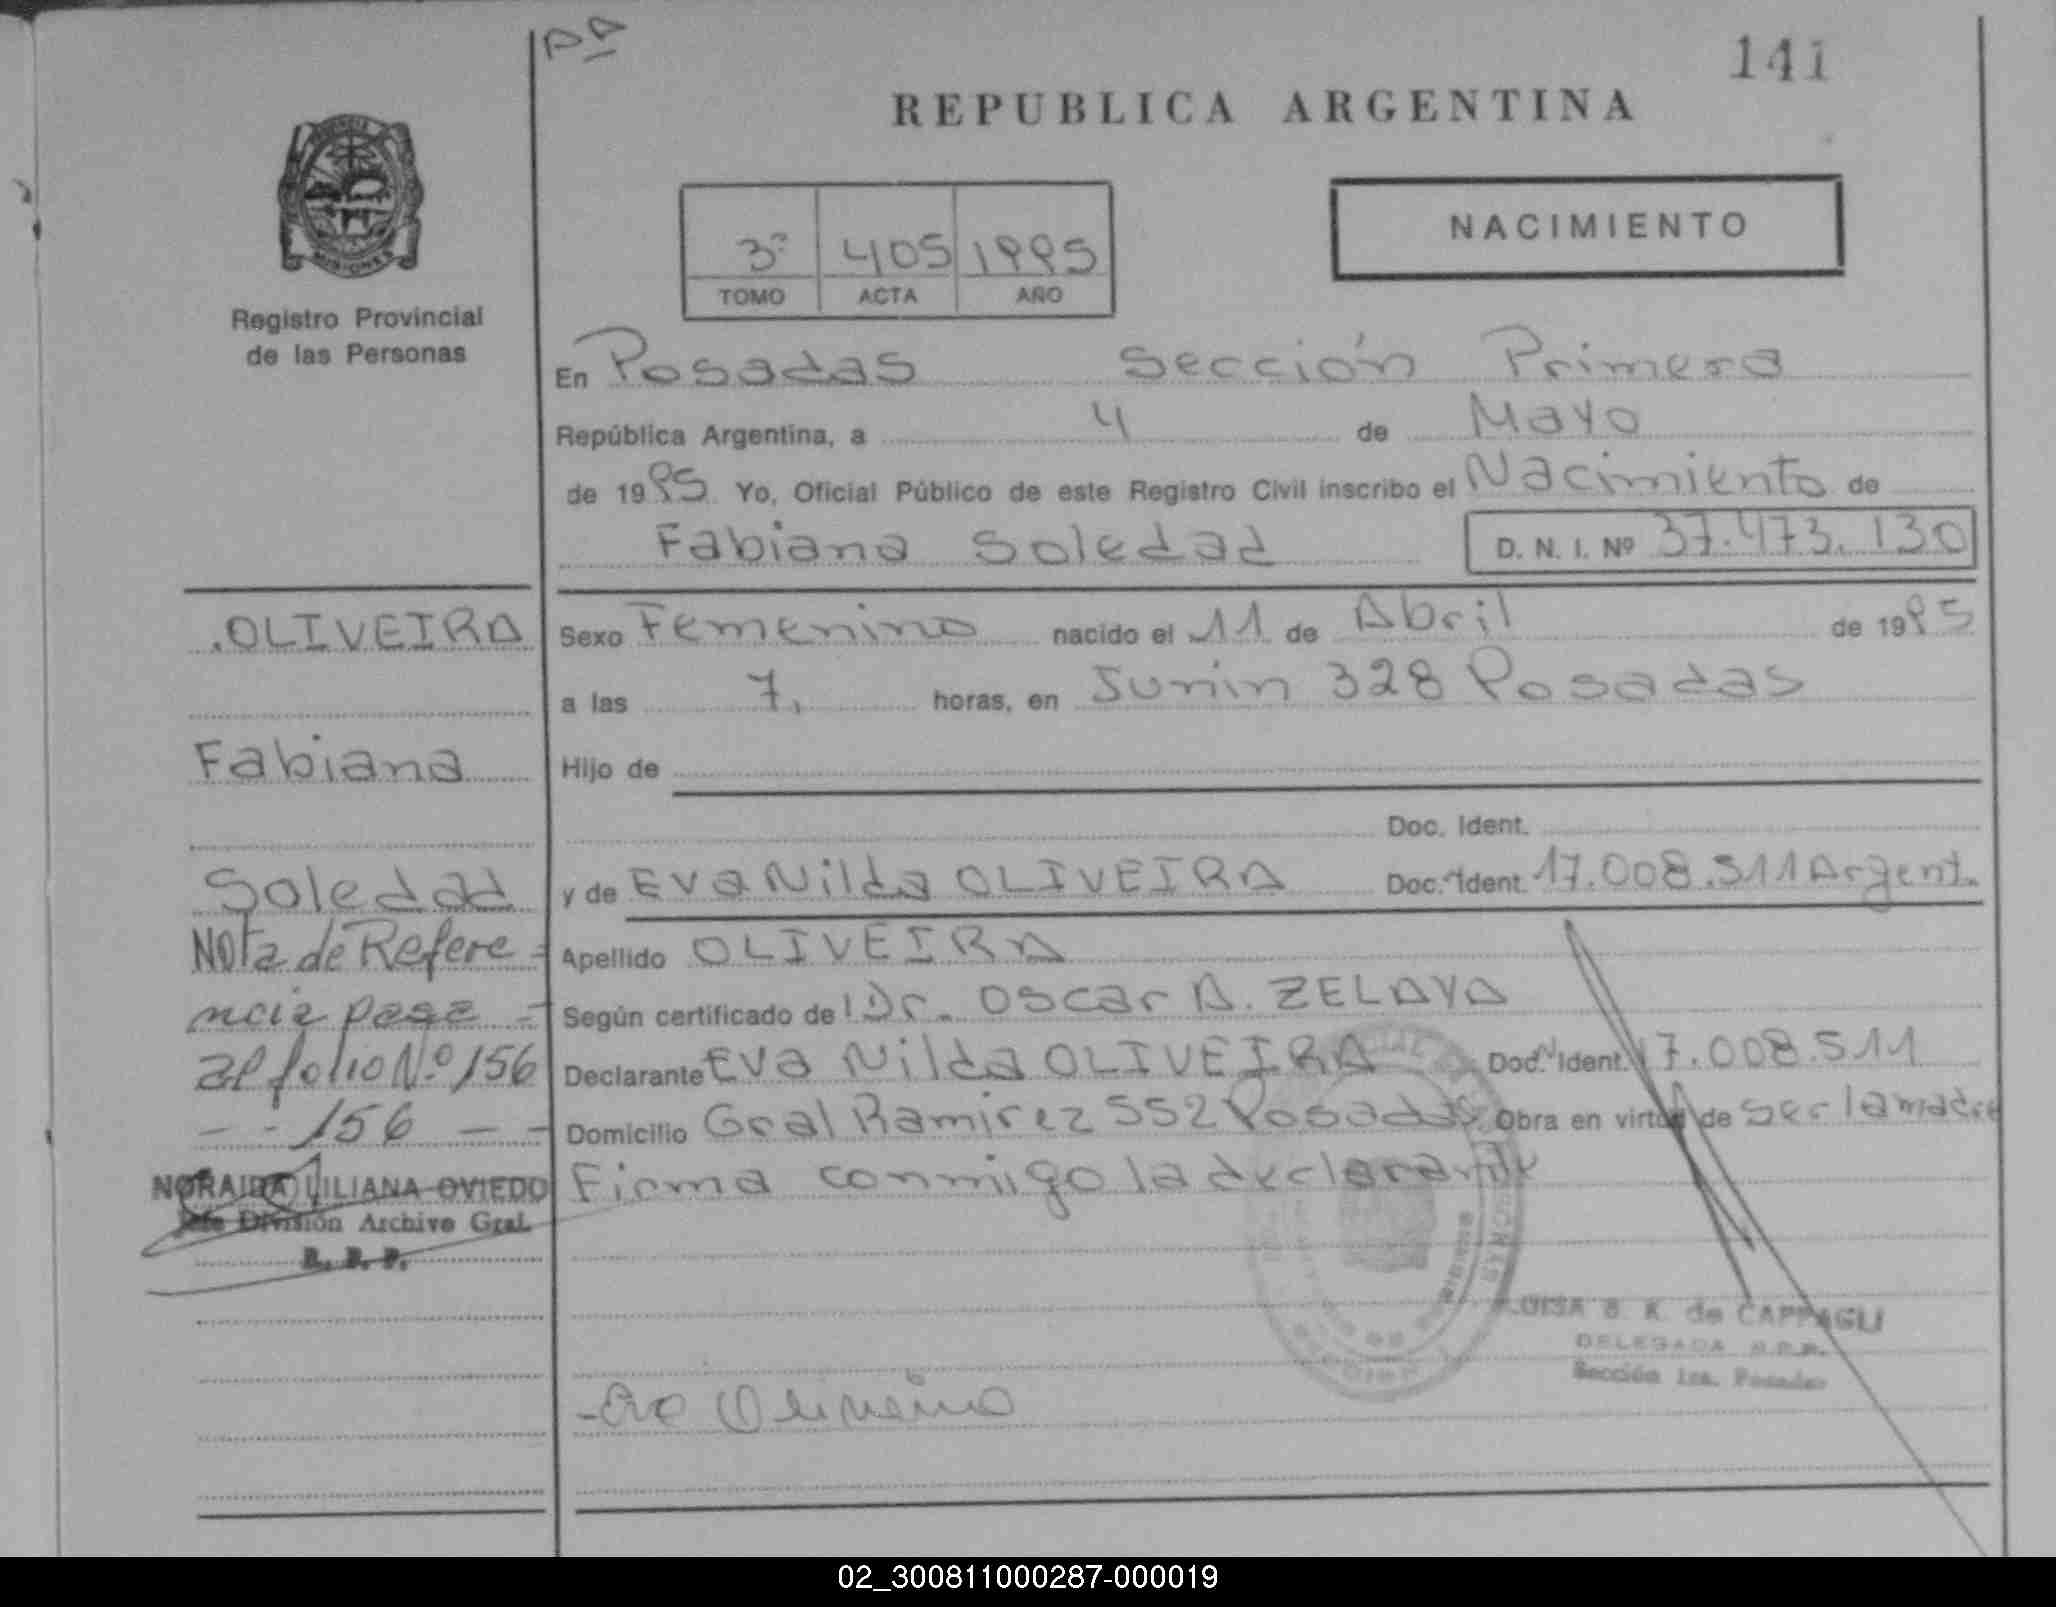 AA
141
REPUBLICA ARGENTINA
MISIONES
Registro Provincial
de las Personas
3º 405 1995
TOMO ACTA AÑO
NACIMIENTO
En Posadas Sección Primera
República Argentina, a 4 de Mayo
de 1995 Yo, Oficial Público de este Registro Civil inscribo el Nacimiento de
Fabiana Soledad D. N. I. Nº 37.473.130
OLIVEIRA
Fabiana
Soledad
Nota de Refere-
ncia pasa
al folio Nº 156
-- 156 --
NORAIDA LILIANA OVIEDO
Jefe División Archivo Gral.
R. P. P.
Sexo Femenino nacido el 11 de Abril de 1995
a las 7, horas, en Junin 328 Posadas
Hijo de
Doc. Ident.
y de Eva Nilda OLIVEIRA Doc. Ident. 17.008.511 Argent.
Apellido OLIVEIRA
Según certificado de Dr. Oscar A. ZELAYA
Declarante Eva Nilda OLIVEIRA Doc. Ident. 17.008.511
Domicilio Gral Ramirez 552 Posadas Obra en virtud de ser la madre
Firma conmigo la declarante
MISIONES
LUISA B. K. de CAPPAGLI
DELEGADA R.P.P.
Sección 1ra. Posadas
Eva Oliveira
02_300811000287-000019